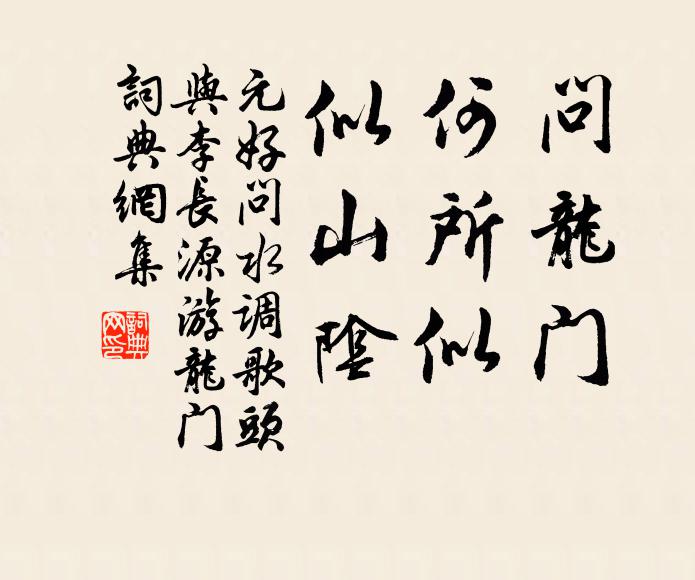 问龍门
何所似
似山陰
元好问水调歌頭
與李長源游龍门
詞典網集
詞典
网印